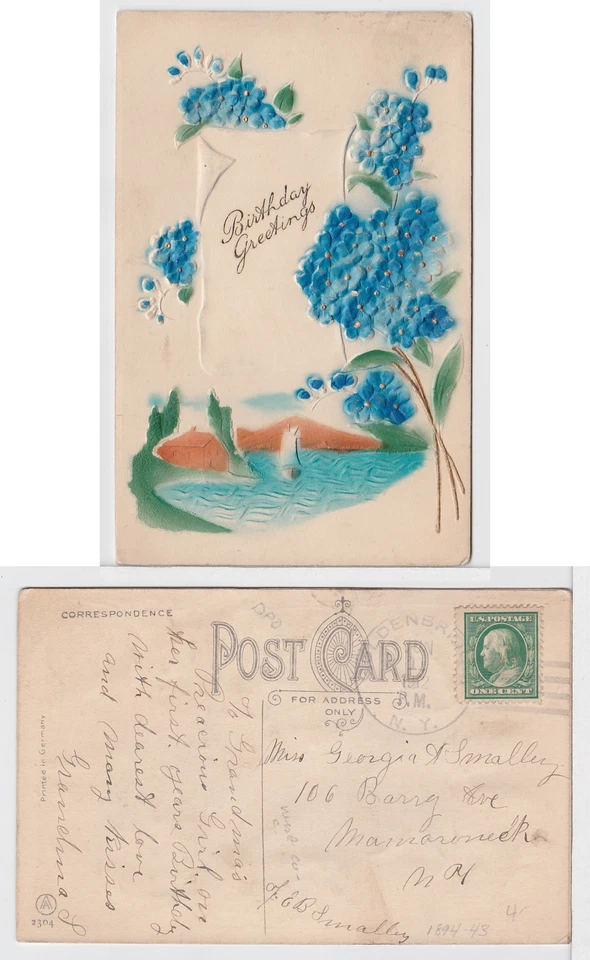 Birthday
Greetings
CORRESPONDENCE
POST CARD
FOR ADDRESS
ONLY
DPO
DENBRI
M.
N. Y.
U.S. POSTAGE
ONE CENT
To Grandma's
Preacious Girl on
her first years Birthday
with dearest love
and many kisses
Grandma S
Miss Georgia A Smalley
106 Barry Ave
Mamaroneck
N Y
F. E B Smalley
1894-43
4
Printed in Germany
2304